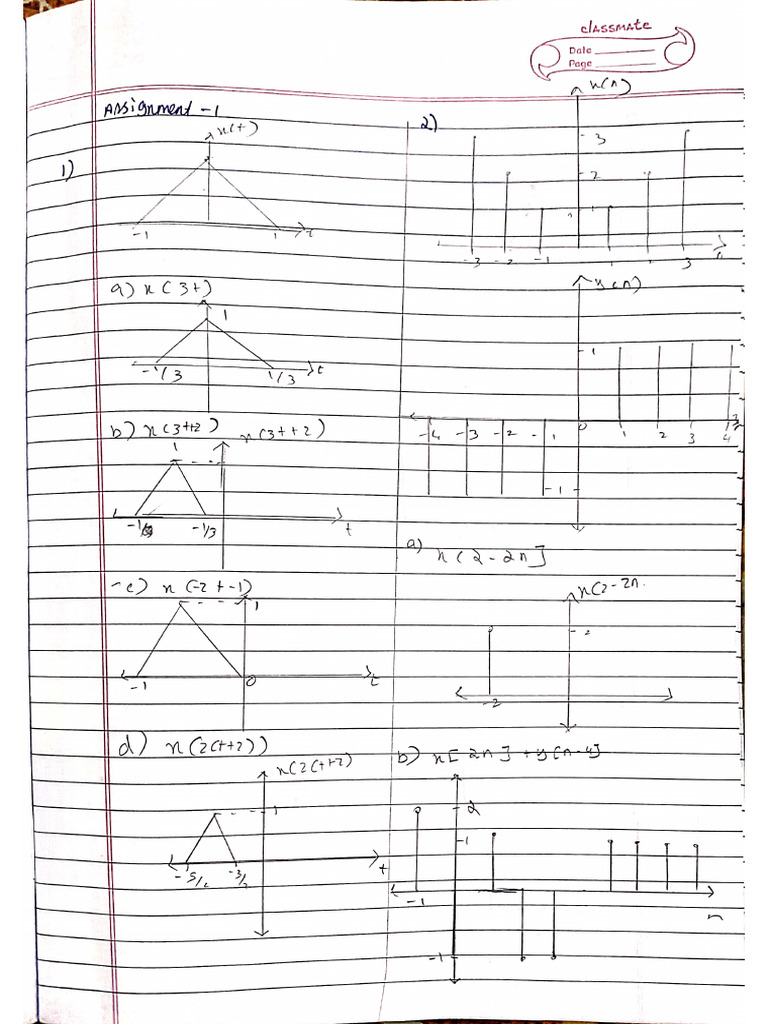 classmate
Date
Page
Assignment - 1
1)
x(t)
-1
1
t
a) x(3t)
1
-1/3
1/3
t
b) x(3t+2)
x(3t+2)
1
-1/3
t
c) x(-2t-1)
1
-1
0
t
d) x(2(t+2))
x(2(t+2)
1
-5/2
-3/2
t
2)
x(n)
3
2
1
-3
-2
-1
3
n
y(n)
1
0
-4
-3
-2
-1
1
2
3
4
n
-1
a)
x(2-2n]
x(2-2n.
2
-2
b) x[2n] + y[n-4]
2
1
-1
n
-1